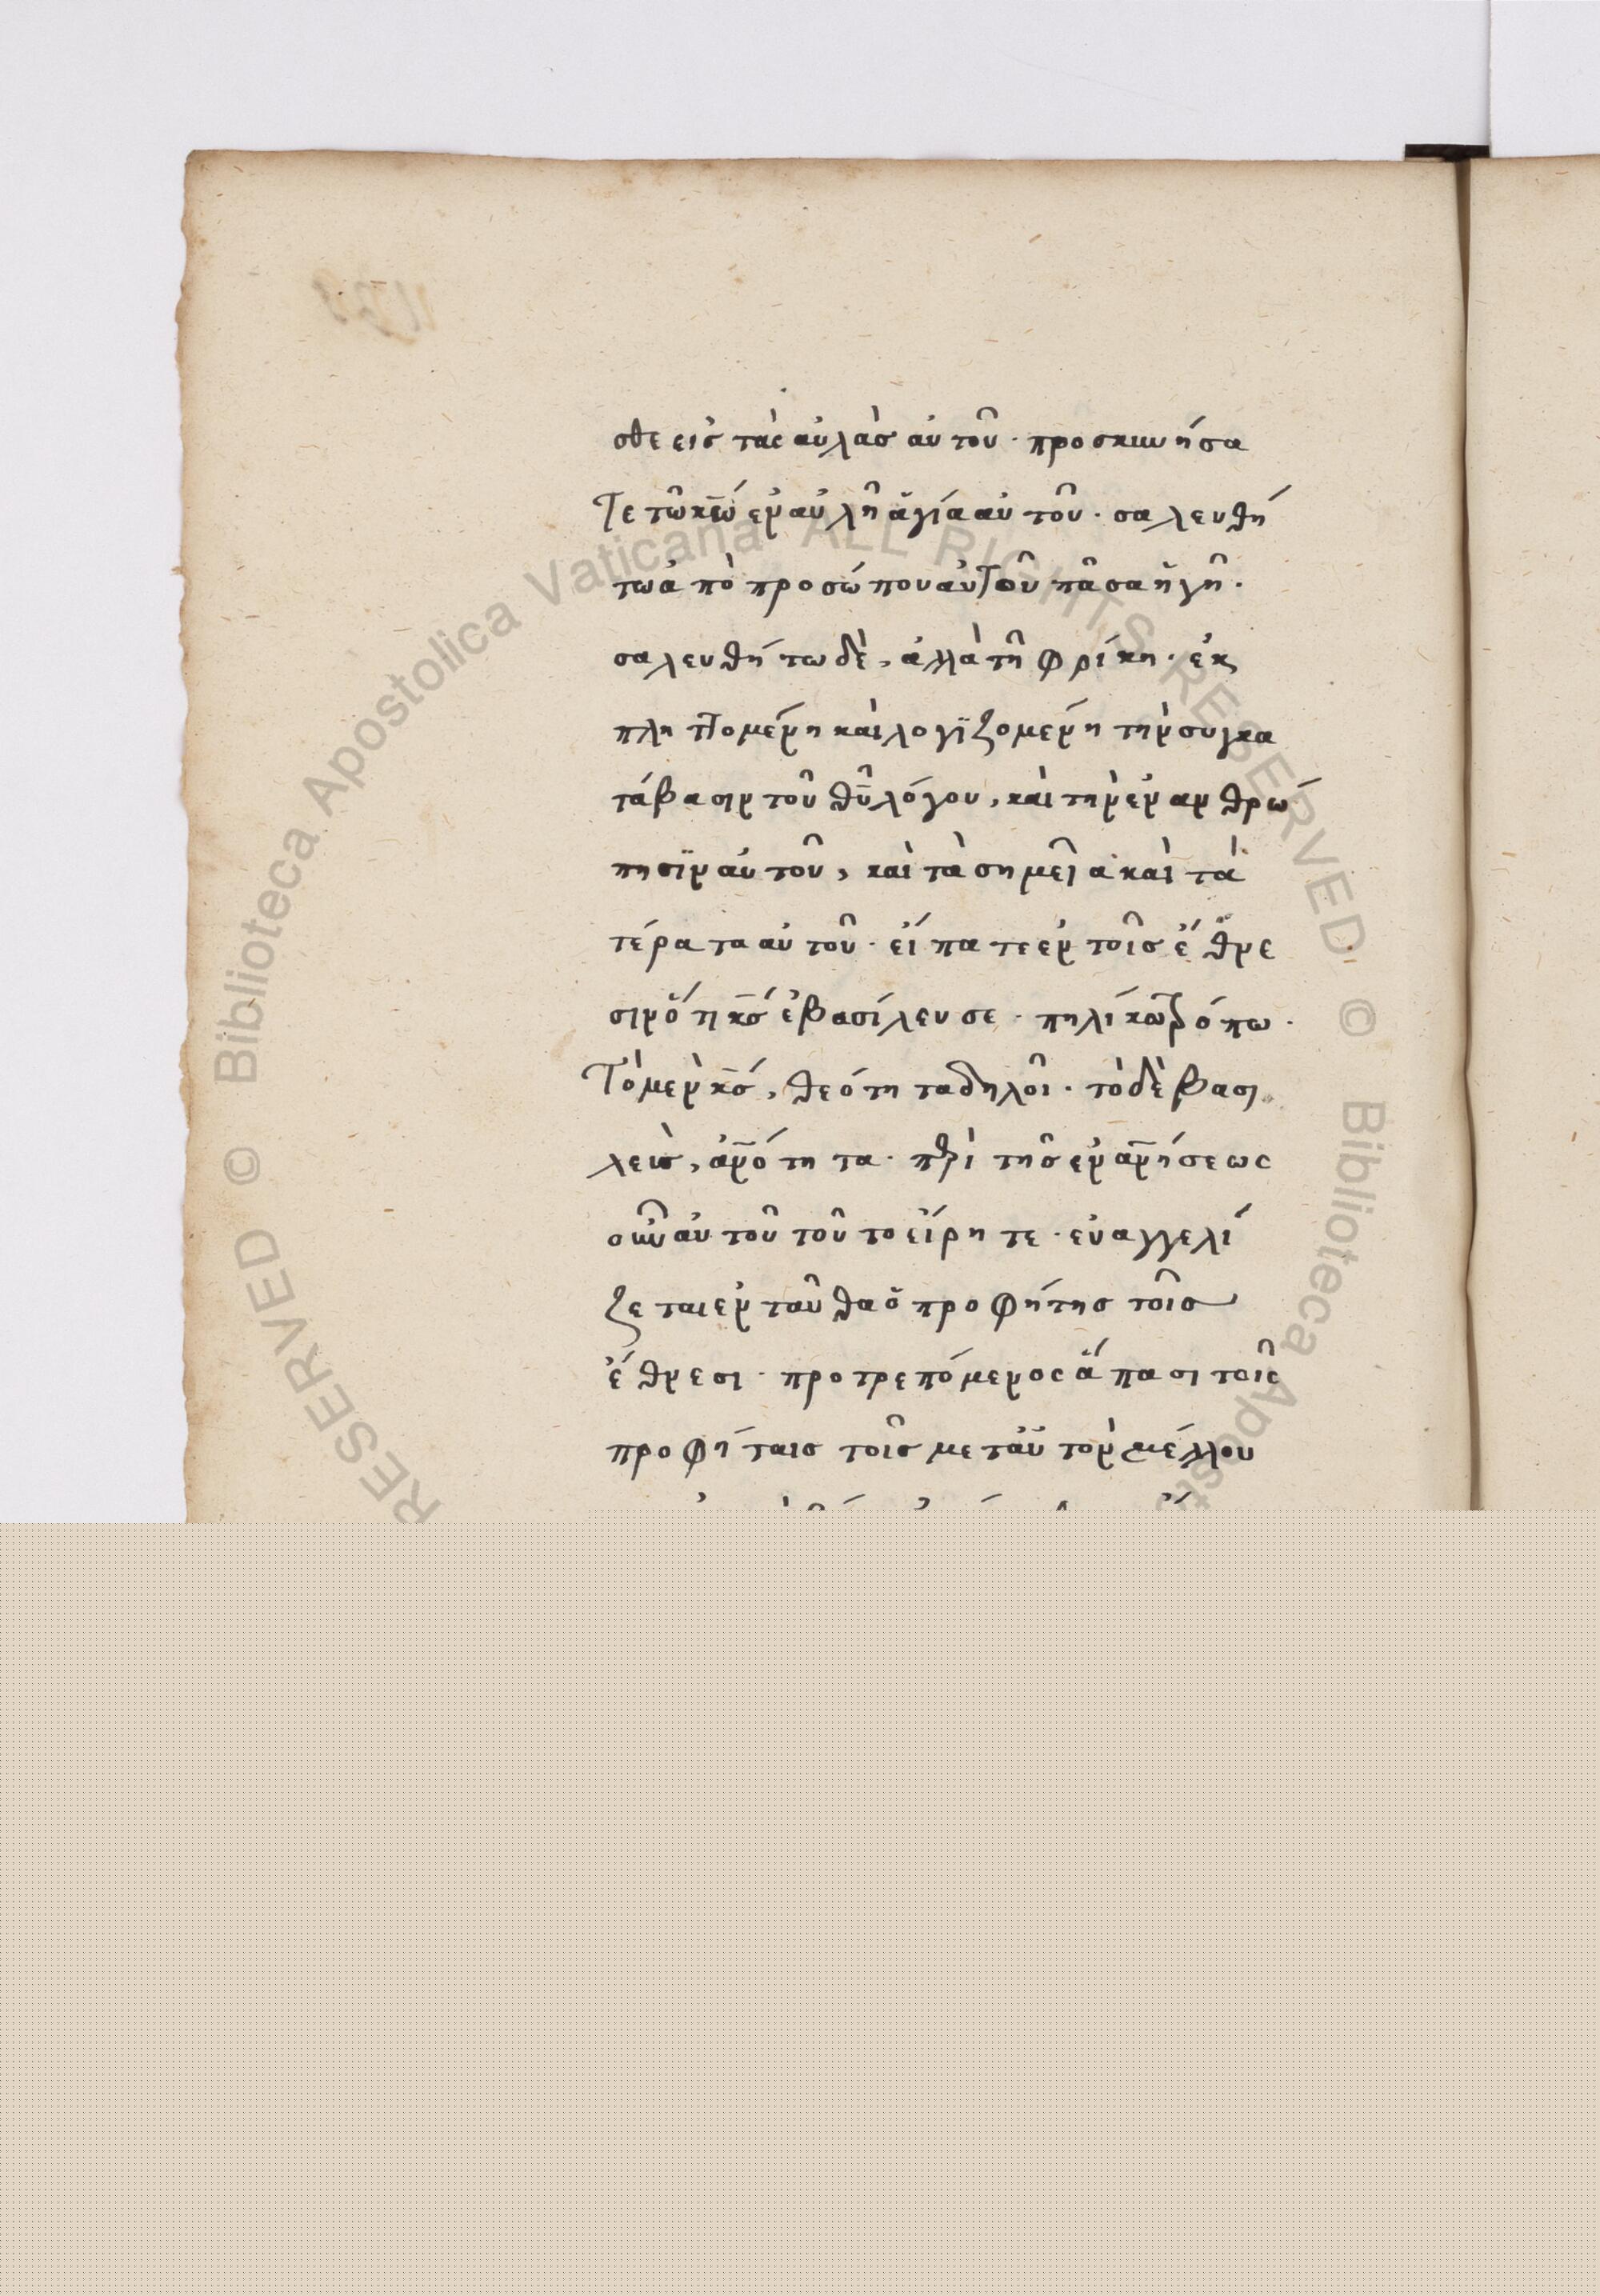 σθε εἰς τὰς αὐλὰς αὐτοῦ· προσκυνήσα
τε τῶ κ̅ω̅ ἐν αὐλῆ ἁγία αὐτοῦ· σαλευθή
τω ἀπὸ προσώπου αὐτοῦ πᾶσα ἡ γῆ·
σαλευθήτω δὲ, ἀλλὰ τῆ φρίκη· ἐκ
πληττομένη καὶ λογϊζομένη τὴν συγκα
τάβασιν τοῦ θ̅υ̅ λόγου, καὶ τὴν ἐνανθρώ
πησϊν αὐτοῦ, καὶ τὰ σημεῖα καὶ τὰ
τέρατα αὐτοῦ· εἴπατε ἐν τοῖς ἔθνε
σιν ὅτι κ̅ς̅ ἐβασίλευσε· πηλίκω τρόπω·
Τὸ μὲν κ̅ς̅, θεότητα δηλοῖ· τὸ δὲ βασι
λεὺς, ἀν̅ότητα· περὶ τῆς ἐναν̅ήσεως
οὖν αὐτοῦ τοῦτο εἴρητε· εὐαγγελί
ζεται ἐνταῦθα ὁ προφήτης τοῖς
ἔθνεσι· προτρεπόμενος ἅπασι τοῖς
προφήταις τοῖς μετ' αὐτὸν μέλλου
© Biblioteca Apostolica Vaticana ALL RIGHTS RESERVED © Biblioteca Apost
RESERVED